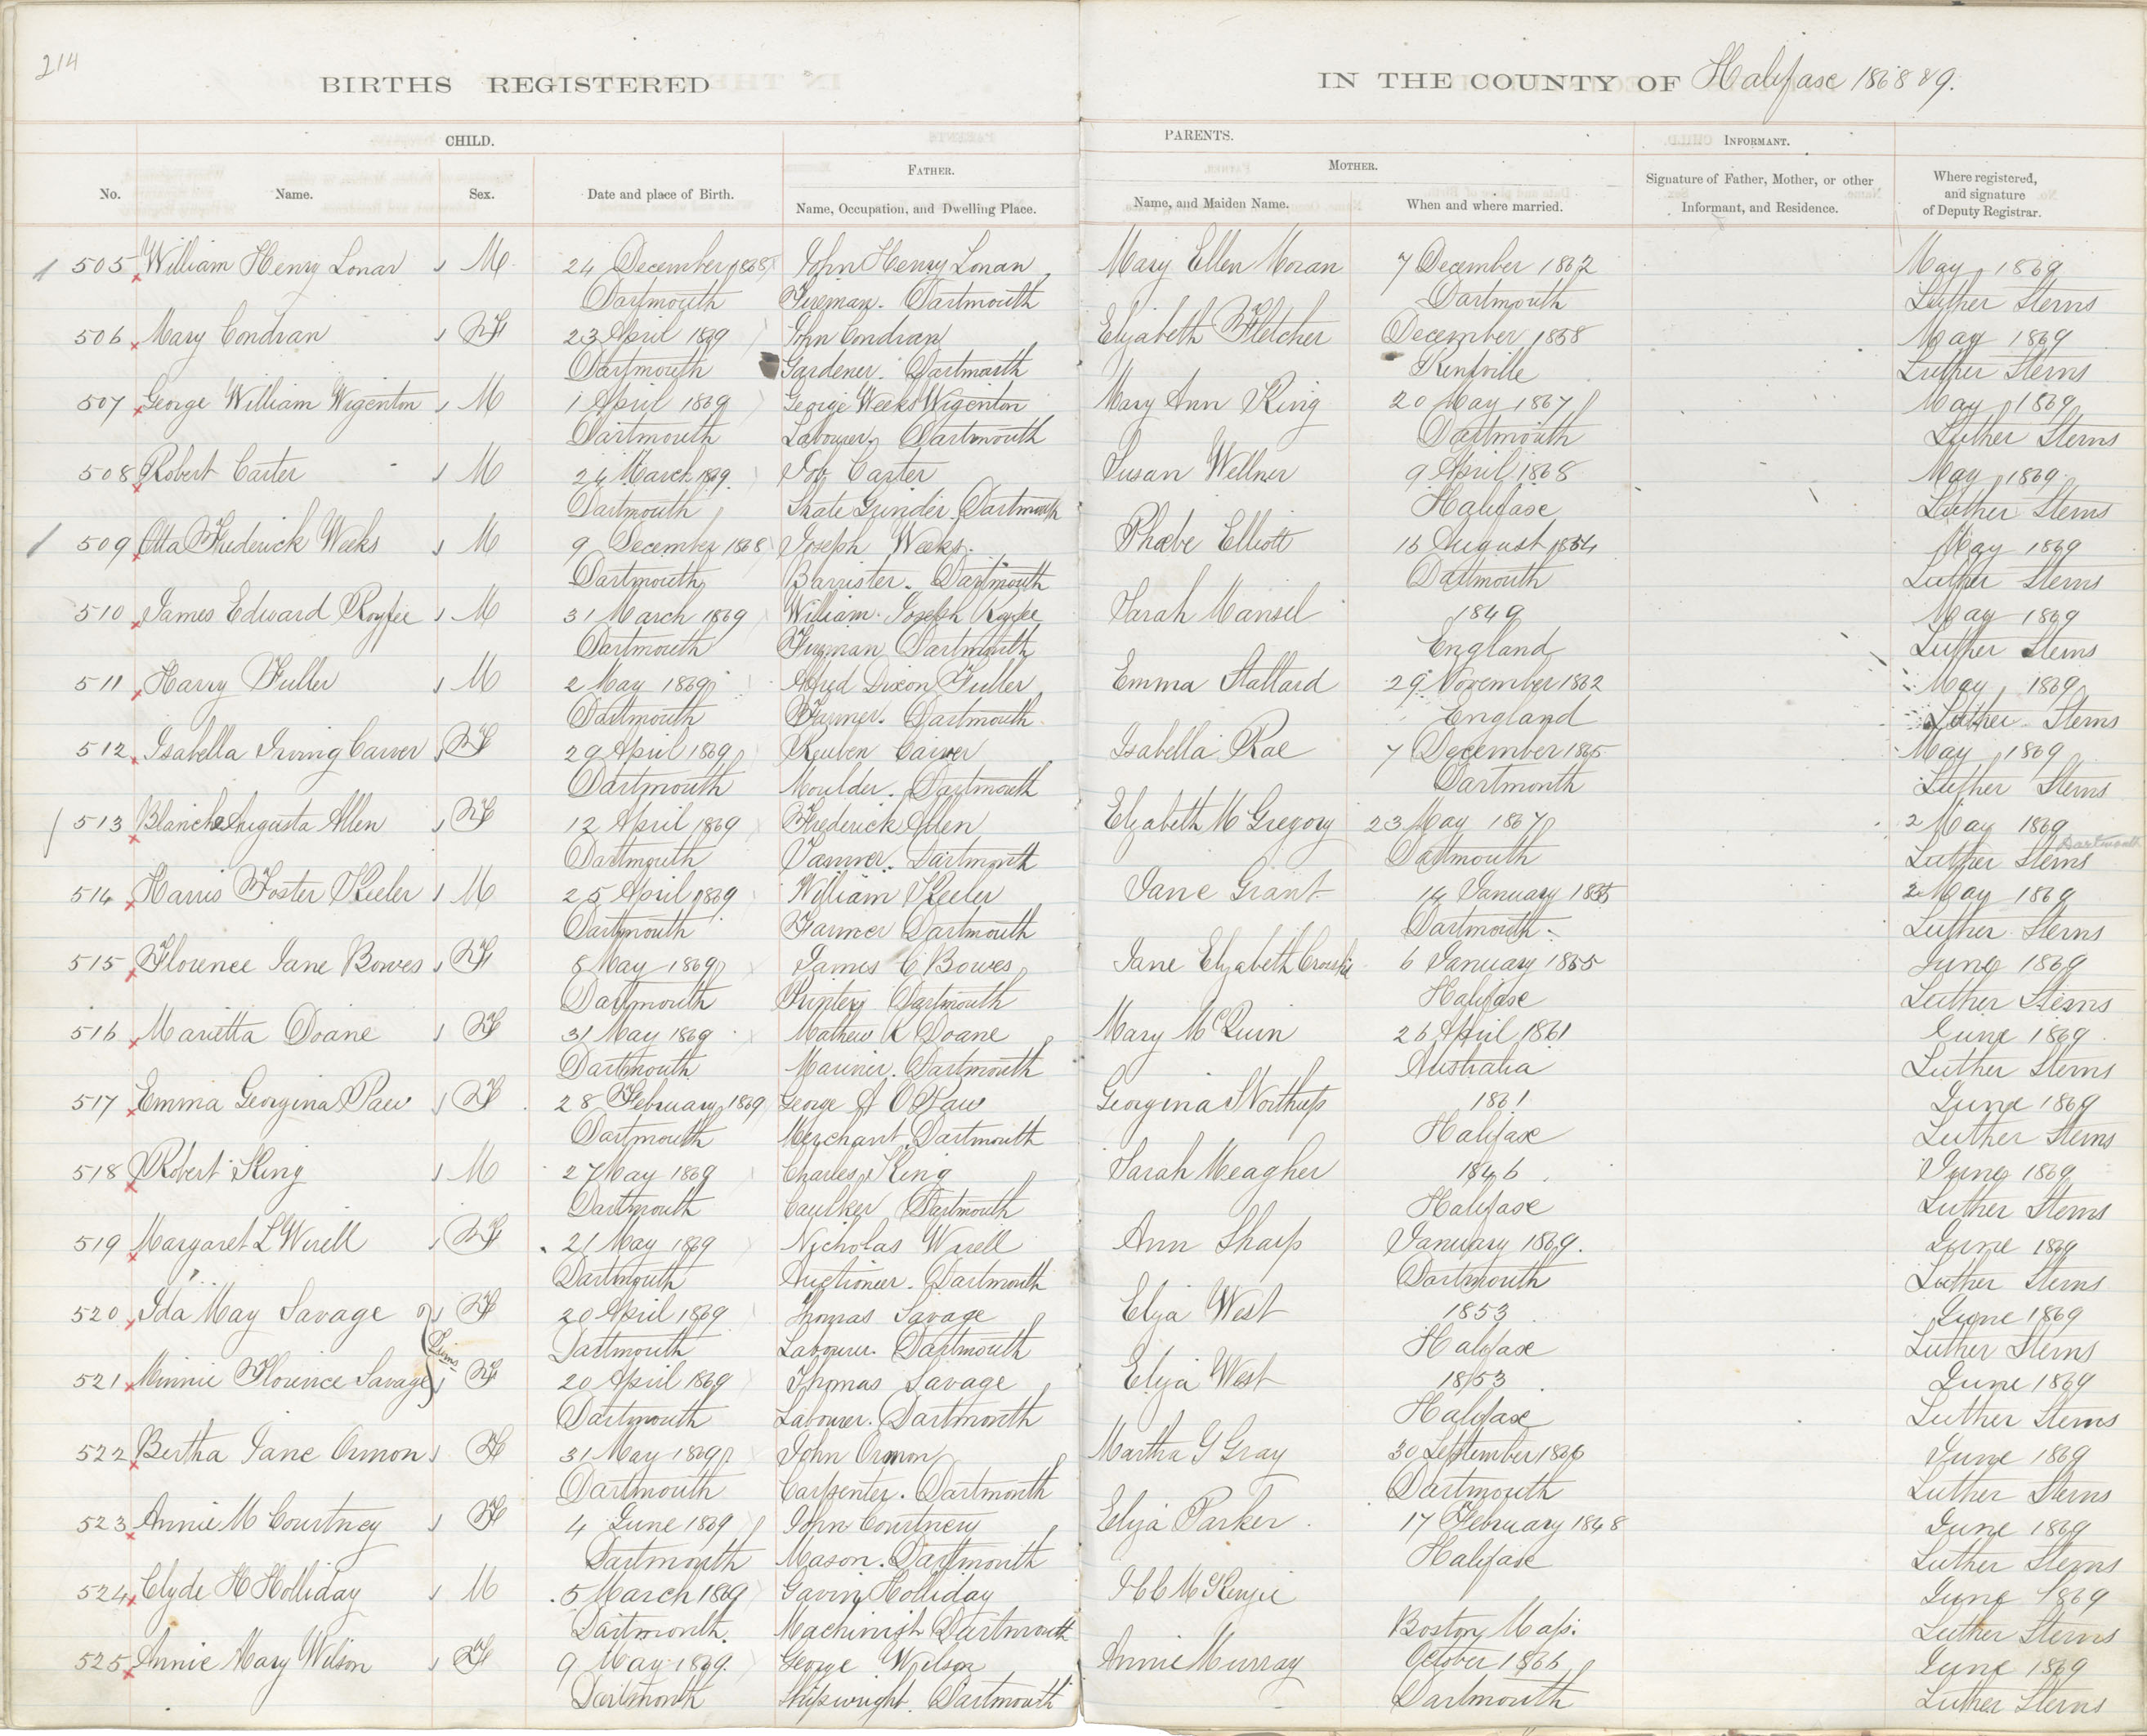 214
BIRTHS REGISTERED IN THE COUNTY OF Halifax 1868 & 9.
CHILD. PARENTS. INFORMANT.
No. Name. Sex. Date and place of Birth. FATHER. Name, Occupation, and Dwelling Place. MOTHER. Name, and Maiden Name. When and where married. Signature of Father, Mother, or other Informant, and Residence. Where registered, and signature of Deputy Registrar.
505 William Henry Lonan M 24 December 1868 John Henry Lonan Mary Ellen Moran 7 December 1862 May 1869
Dartmouth Fireman. Dartmouth Dartmouth Luther Sterns
506 Mary Condran F 23 April 1869 John Condran Elizabeth Fletcher December 1858 May 1869
Dartmouth Gardener. Dartmouth Kentville Luther Sterns
507 George William Wigenton M 1 April 1869 George Weeks Wigenton Mary Ann King 20 May 1867 May 1869
Dartmouth Labourer. Dartmouth Dartmouth Luther Sterns
508 Robert Carter M 24 March 1869. Job Carter Susan Wellner 9 April 1868 May 1869
Dartmouth Skate Grinder. Dartmouth Halifax Luther Sterns
509 Otta Frederick Weeks M 9 December 1868 Joseph Weeks. Phœbe Elliott 15 August 1854 May 1869
Dartmouth Barrister. Dartmouth Dartmouth Luther Sterns
510 James Edward M 31 March 1869 William Joseph Sarah Mansel 1849 May 1869
Dartmouth Fireman Dartmouth England Luther Sterns
511 Harry Fuller M 2 May 1869 Alfred Dixon Fuller Emma Stallard 29 November 1862 May 1869
Dartmouth Farmer. Dartmouth. England Luther Sterns
512 Isabella Irving Carver F 29 April 1869 Reuben Carver Isabella Rae 7 December 1865 May 1869
Dartmouth Moulder. Dartmouth Dartmouth Luther Sterns
513 Blanche Augusta Allen F 12 April 1869 Frederick Allen Elizabeth McGregory 23 May 1867 2 May 1869
Dartmouth Tanner. Dartmouth Dartmouth Luther Sterns Dartmouth
514 Harris Foster Keeler M 25 April 1869 William Keeler Jane Grant 14 January 1855 2 May 1869
Dartmouth Farmer Dartmouth Dartmouth. Luther Sterns
515 Florence Jane Bowes F 8 May 1869 James C Bowes Jane Elizabeth 6 January 1855 June 1869
Dartmouth Printer Dartmouth Halifax Luther Sterns
516 Marietta Doane F 31 May 1869 Mathew K Doane Mary McQuin 26 April 1861 June 1869
Dartmouth Mariner. Dartmouth Australia Luther Sterns
517 Emma Georgina Paw F 28 February 1869 George A O Paw Georgina Northup 1861 June 1869
Dartmouth Merchant. Dartmouth Halifax Luther Sterns
518 Robert King M 27 May 1869 Charles King Sarah Meagher 1846 June 1869
Dartmouth Caulker Dartmouth Halifax Luther Sterns
519 Margaret L Wirell F 21 May 1869 Nicholas Wirell Ann Sharp January 1869. June 1869
Dartmouth Auctioneer. Dartmouth Dartmouth Luther Sterns
520 Ida May Savage F 20 April 1869 Thomas Savage Eliza West 1853 June 1869
Twins Dartmouth Labourer. Dartmouth Halifax Luther Sterns
521 Minnie Florence Savage F 20 April 1869 Thomas Savage Eliza West 1853 June 1869
Dartmouth Labourer. Dartmouth Halifax Luther Sterns
522 Bertha Jane Ormon F 31 May 1869 John Ormon Martha G Gray 30 September 1866 June 1869
Dartmouth Carpenter. Dartmouth Dartmouth Luther Sterns
523 Annie M Courtney F 4 June 1869 John Courtney Eliza Parker 17 February 1848 June 1869
Dartmouth Mason. Dartmouth Halifax Luther Sterns
524 Clyde H Holliday M 5 March 1869 Gavin Holliday McKenzie June 1869
Dartmouth. Machinist Dartmouth Boston Mass. Luther Sterns
525 Annie Mary Wilson F 9 May 1869. George Wilson Annie Murray October 1866 June 1869
Dartmouth Shipwright. Dartmouth Dartmouth Luther Sterns